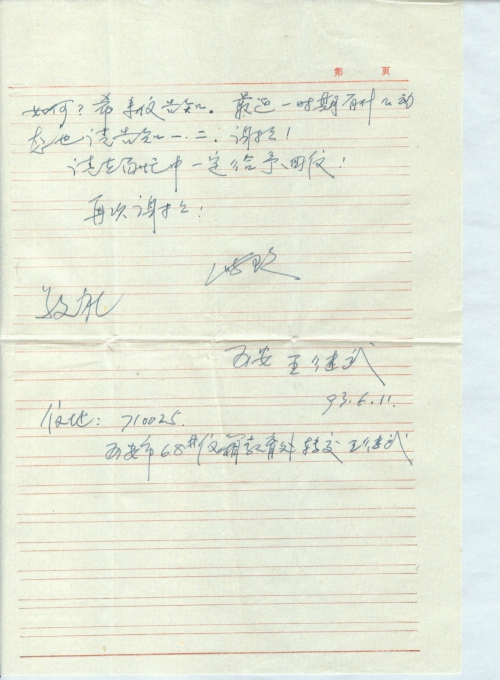 第 页
如何？希来信告知。最近一时期有什么动
态也请告知一、二。谢谢！
请在百忙中一定给予回信！
再次谢谢！
此致
敬礼
西安 王继武
93.6.11.
信址：710025.
西安市68#信箱教育处转交王继武